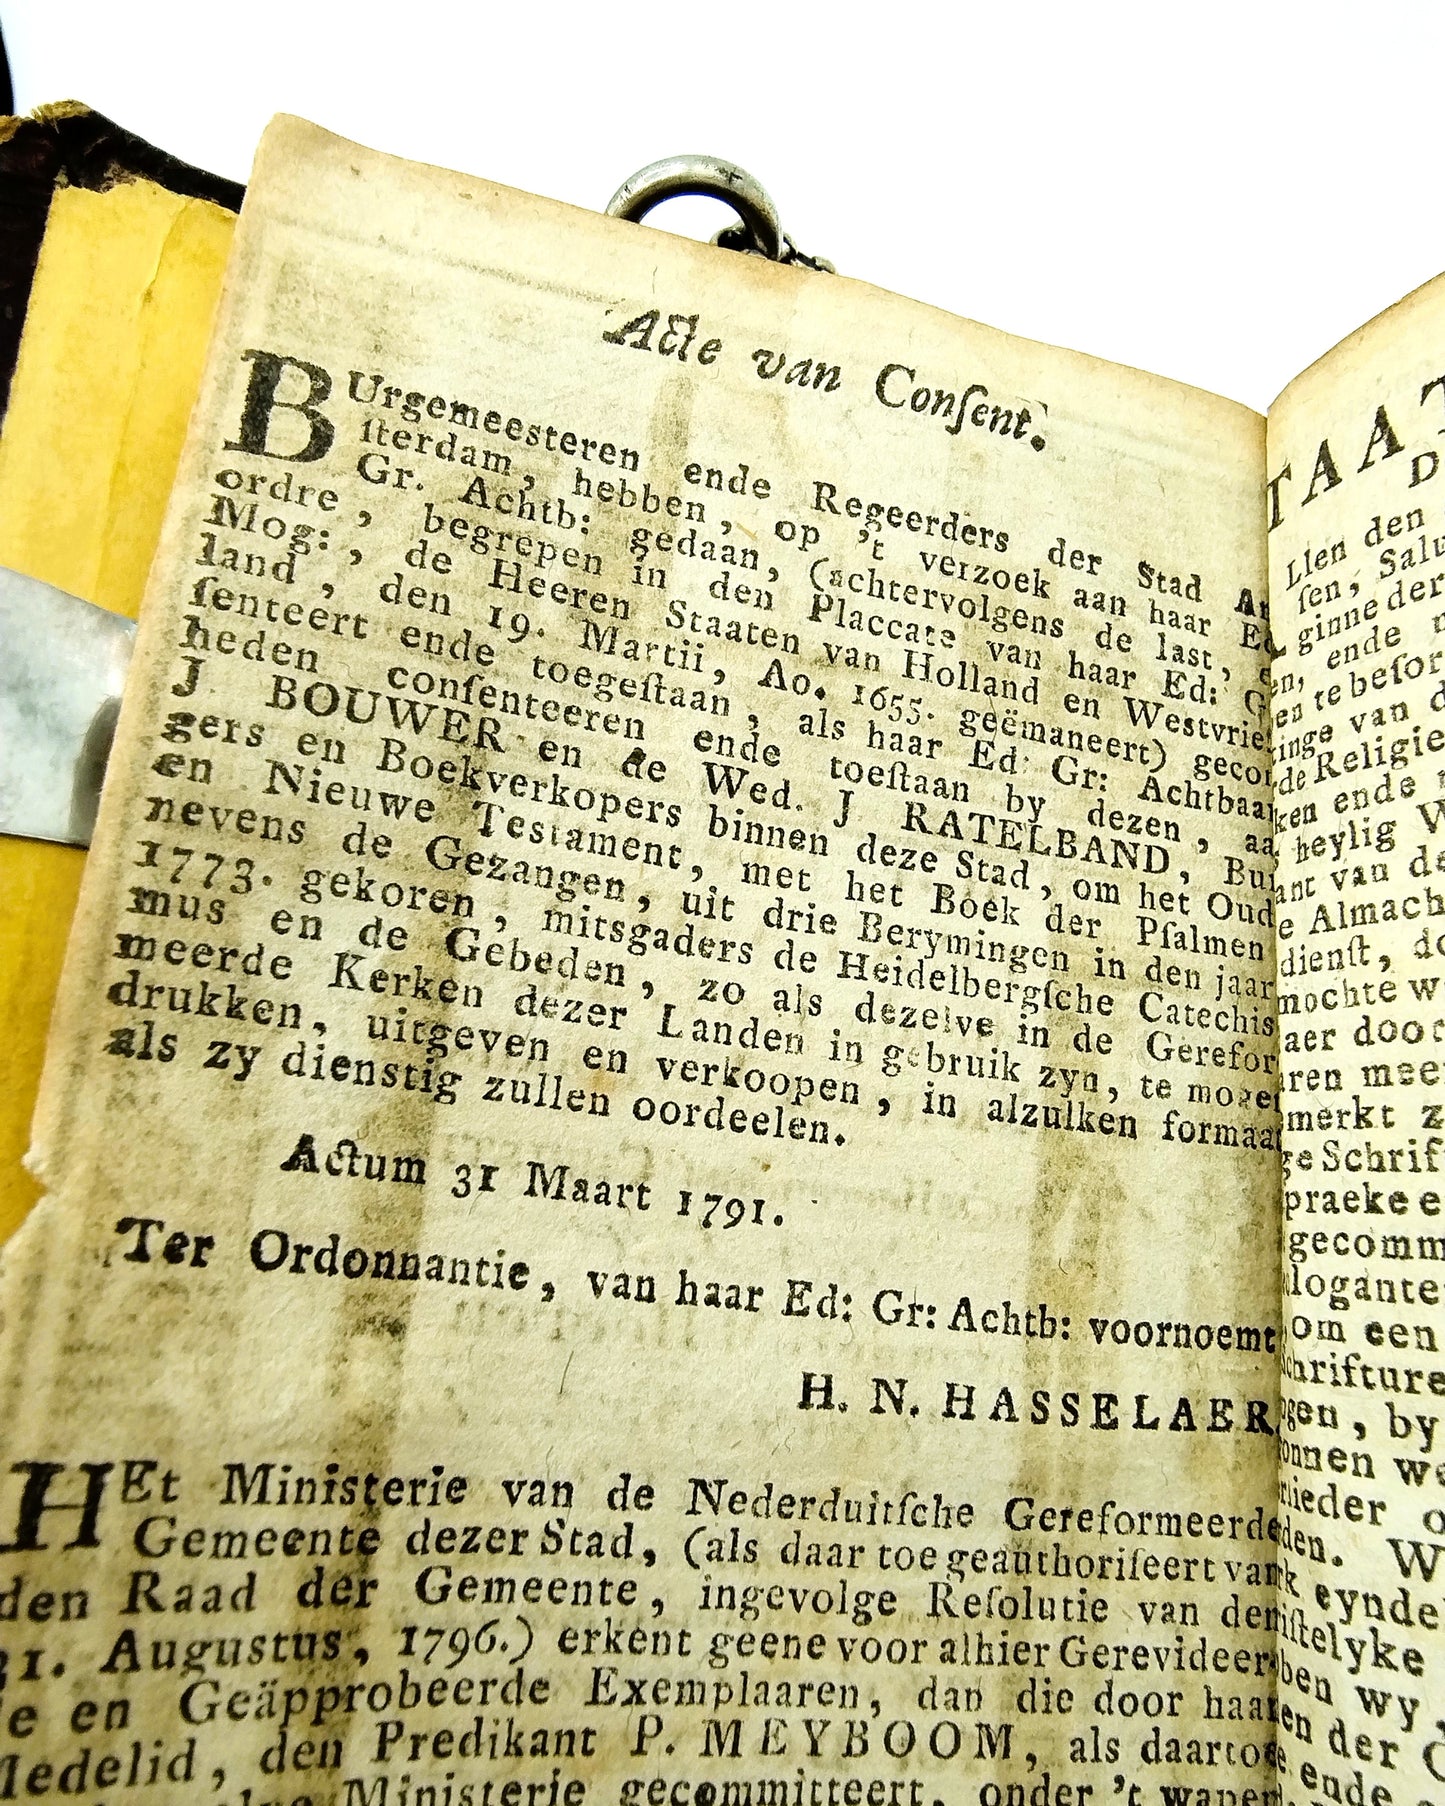 Acte van Conſent.
BUrgemeesteren ende Regeerders der Stad
ſterdam, hebben, op 't verzoek aan haar Ed
Gr. Achtb: gedaan, (achtervolgens de last,
ordre, begrepen in den Placcate van haar Ed: G
Mog:, de Heeren Staaten van Holland en Westvrie
land, den 19. Martii, Ao. 1655. geëmaneert) gecon
ſenteert ende toegeſtaan, als haar Ed: Gr: Achtbaar
heden conſenteeren ende toeſtaan by dezen, aa
J. BOUWER en de Wed. J RATELBAND, Bur
gers en Boekverkopers binnen deze Stad, om het Oud
en Nieuwe Testament, met het Boek der Pſalmen
nevens de Gezangen, uit drie Berymingen in den jaar
1773. gekoren, mitsgaders de Heidelbergſche Catechis
mus en de Gebeden, zo als dezelve in de Gerefor
meerde Kerken dezer Landen in gebruik zyn, te mogen
drukken, uitgeven en verkoopen, in alzulken formaat
als zy dienstig zullen oordeelen.
Actum 31 Maart 1791.
Ter Ordonnantie, van haar Ed: Gr: Achtb: voornoemt
H. N. HASSELAER.
HEt Ministerie van de Nederduitſche Gereformeerde
Gemeente dezer Stad, (als daar toe geauthoriſeert van
den Raad der Gemeente, ingevolge Reſolutie van den
31. Augustus, 1796.) erkent geene voor alhier Gerevideer
de en Geäpprobeerde Exemplaaren, dan die door haar
Medelid, den Predikant P. MEYBOOM, als daartoe
Ministerie gecommitteert, onder 't wapen
TAAT
D
Llen den
ſen, Salu
ginne der
en, ende
en te beſor
inge van d
de Religie
ken ende
heylig W
ant van de
e Almach
dienſt, do
mochte w
aer door
ren mee
merkt z
ge Schrif
praeke e
gecomm
logante
om een
chrifture
gen, by
onnen we
lieder o
den. W
k eynde
iſtelyke
ben wy,
en der G
ende